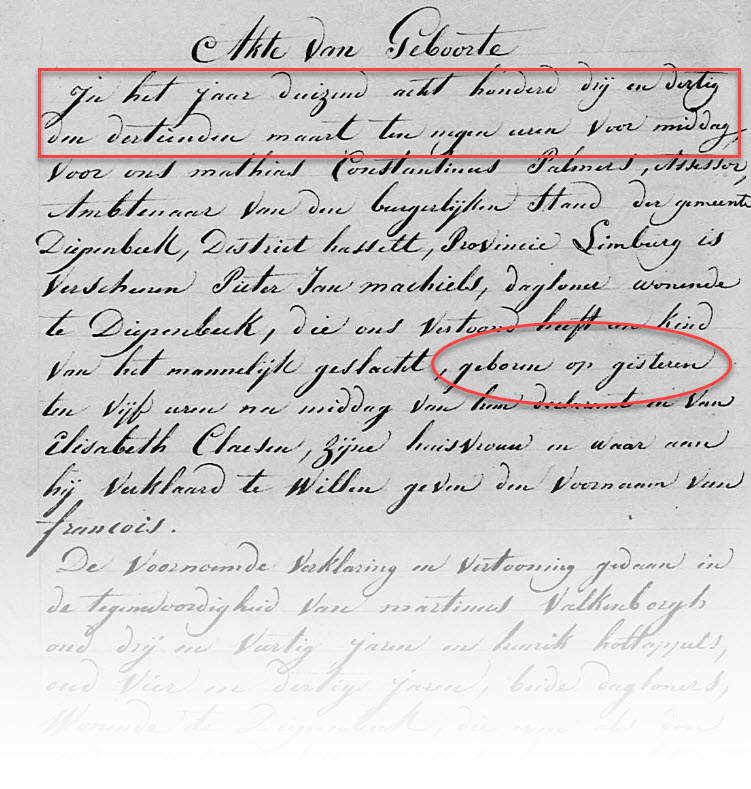 Akte van Geboorte
In het jaar duizend acht honderd drij en dertig
den dertienden maart ten negen uren voor middag,
voor ons mathias Constantinus Palmers, Assessor,
Ambtenaar van den burgerlijken Stand der gemeente
Diepenbeek, District hasselt, Provincie Limburg is
verschenen Pieter Jan machiels, dagloner wonende
te Diepenbeek, die ons vertoond heeft een kind
van het mannelijk geslacht, geboren op gisteren
ten vijf uren na middag van hem declarant en van
Elisabeth Claesen, zijne huisvrouw en waar aan
hij verklaard te willen geven den voornaam van
francois.
De voornoemde verklaring en vertooning gedaan in
de tegenwoordigheid van martinus Valkenborgh
oud drij en veertig jaren en henrik holtappels,
oud vier en dertig jaren, beide dagloners,
Wonende te Diepenbeek, die als den